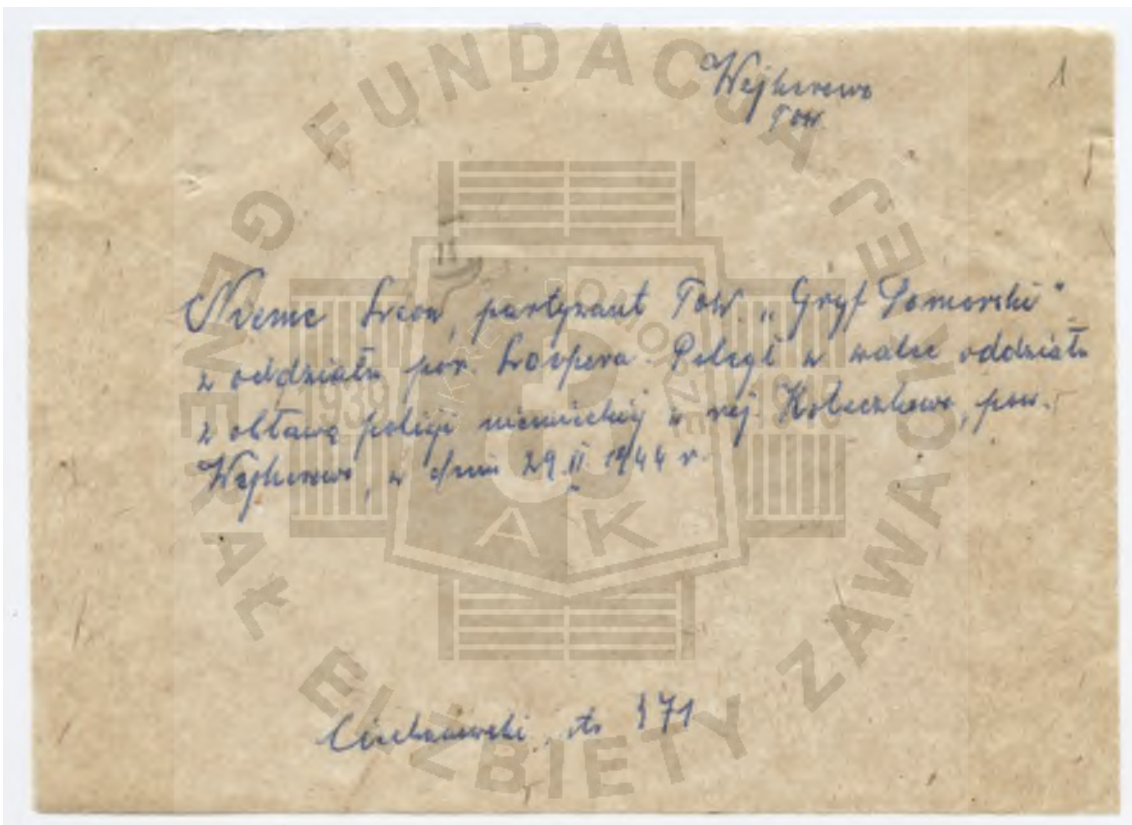 Wejherowo
TOW
1
Leon, partyzant TOW. „Gryf Pomorski"
z oddziału por. Loopera. Poległ w walce oddziału
z obławą policji niemieckiej w rej. Kobeczkowo, pow.
Wejherowo, w dniu 29.II 1944 r.
Ciechanowski, str 171
FUNDACJA JEJ
GENERAŁ ELŻBIETY ZAWACK
OKRĘG POMORZE
1939 1945
AK